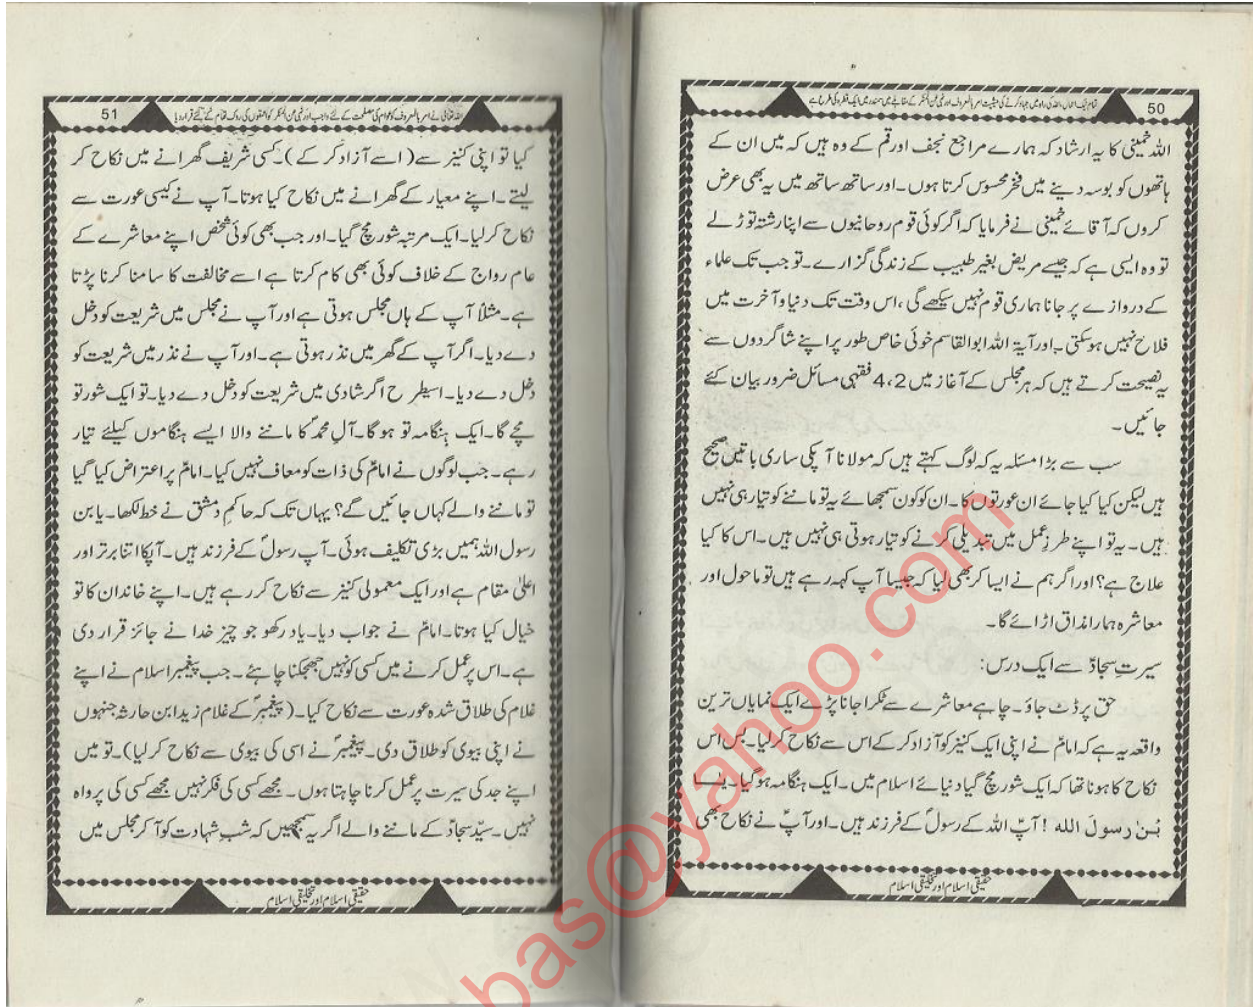 50
تمام نیک اعمال، اللہ کی راہ میں جہاد کرنے کی حیثیت امر بالمعروف اور نہی عن المنکر کے مقابلے میں سمندر میں ایک قطرہ کی طرح ہے
اللہ خمینی کا یہ ارشاد کہ ہمارے مراجع نجف اور قم کے وہ ہیں کہ میں ان کے
ہاتھوں کو بوسہ دینے میں فخر محسوس کرتا ہوں۔ اور ساتھ ساتھ میں یہ بھی عرض
کروں کہ آقائے خمینی نے فرمایا کہ اگر کوئی قوم روحانیوں سے اپنا رشتہ توڑ لے
تو وہ ایسی ہے کہ جیسے مریض بغیر طبیب کے زندگی گزارے۔ تو جب تک علماء
کے دروازے پر جانا ہماری قوم نہیں سیکھے گی، اس وقت تک دنیا و آخرت میں
فلاح نہیں ہوسکتی۔ اور آیۃ اللہ ابوالقاسم خوئی خاص طور پر اپنے شاگردوں سے
یہ نصیحت کرتے ہیں کہ ہر مجلس کے آغاز میں 2، 4 فقہی مسائل ضرور بیان کئے
جائیں۔
سب سے بڑا مسئلہ یہ کہ لوگ کہتے ہیں کہ مولانا آپکی ساری باتیں صحیح
ہیں لیکن کیا کیا جائے ان عورتوں کا۔ ان کو کون سمجھائے یہ تو ماننے کو تیار ہی نہیں
ہیں۔ یہ تو اپنے طرزِ عمل میں تبدیلی کرنے کو تیار ہوتی ہی نہیں ہیں۔ اس کا کیا
علاج ہے؟ اور اگر ہم نے ایسا کر بھی لیا کہ جیسا آپ کہہ رہے ہیں تو ماحول اور
معاشرہ ہمارا مذاق اڑائے گا۔
سیرتِ سجادؑ سے ایک درس:
حق پر ڈٹ جاؤ۔ چاہے معاشرے سے ٹکرا جانا پڑے ایک نمایاں ترین
واقعہ یہ ہے کہ امامؑ نے اپنی ایک کنیز کو آزاد کر کے اس سے نکاح کرلیا۔ بس اس
نکاح کا ہونا تھا کہ ایک شور مچ گیا دنیائے اسلام میں۔ ایک ہنگامہ ہوگیا۔ یا
بْن رسولَ اللہ! آپؑ اللہ کے رسولؐ کے فرزند ہیں۔ اور آپؑ نے نکاح بھی
حقیقی اسلام اور تخلیقی اسلام
51
اللہ تعالیٰ نے امر بالمعروف کو عوام کی مصلحت کے لئے واجب اور نہی عن المنکر کو احمقوں کی روک تھام کے لئے قرار دیا
کیا تو اپنی کنیز سے (اسے آزاد کر کے)۔ کسی شریف گھرانے میں نکاح کر
لیتے۔ اپنے معیار کے گھرانے میں نکاح کیا ہوتا۔ آپ نے کیسی عورت سے
نکاح کرلیا۔ ایک مرتبہ شور مچ گیا۔ اور جب بھی کوئی شخص اپنے معاشرے کے
عام رواج کے خلاف کوئی بھی کام کرتا ہے اسے مخالفت کا سامنا کرنا پڑتا
ہے۔ مثلاً آپ کے ہاں مجلس ہوتی ہے اور آپ نے مجلس میں شریعت کو دخل
دے دیا۔ اگر آپ کے گھر میں نذر ہوتی ہے۔ اور آپ نے نذر میں شریعت کو
دخل دے دیا۔ اسیطرح اگر شادی میں شریعت کو دخل دے دیا۔ تو ایک شور تو
مچے گا۔ ایک ہنگامہ تو ہوگا۔ آلِ محمدؐ کا ماننے والا ایسے ہنگاموں کیلئے تیار
رہے۔ جب لوگوں نے امامؑ کی ذات کو معاف نہیں کیا۔ امامؑ پر اعتراض کیا گیا
تو ماننے والے کہاں جائیں گے؟ یہاں تک کہ حاکمِ دمشق نے خط لکھا۔ یابن
رسول اللہ ہمیں بڑی تکلیف ہوئی۔ آپ رسولؐ کے فرزند ہیں۔ آپکا اتنا برتر اور
اعلیٰ مقام ہے اور ایک معمولی کنیز سے نکاح کر رہے ہیں۔ اپنے خاندان کا تو
خیال کیا ہوتا۔ امامؑ نے جواب دیا۔ یاد رکھو جو چیز خدا نے جائز قرار دی
ہے۔ اس پر عمل کرنے میں کسی کو نہیں جھجکنا چاہئے۔ جب پیغمبر اسلام نے اپنے
غلام کی طلاق شدہ عورت سے نکاح کیا۔ (پیغمبرؐ کے غلام زید ابن حارثہ جنہوں
نے اپنی بیوی کو طلاق دی۔ پیغمبرؐ نے اسی کی بیوی سے نکاح کرلیا)۔ تو میں
اپنے جد کی سیرت پر عمل کرنا چاہتا ہوں۔ مجھے کسی کی فکر نہیں مجھے کسی کی پرواہ
نہیں۔ سیّد سجادؑ کے ماننے والے اگر یہ سمجھیں کہ شبِ شہادت کو آکر مجلس میں
حقیقی اسلام اور تخلیقی اسلام
bas@yahoo.com